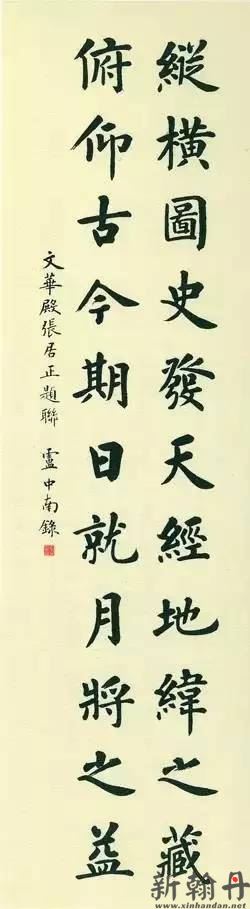 縱橫圖史發天經地緯之藏
俯仰古今期日就月將之益
文華殿張居正題聯 盧中南錄
新翰丹
www.xinhandan.net